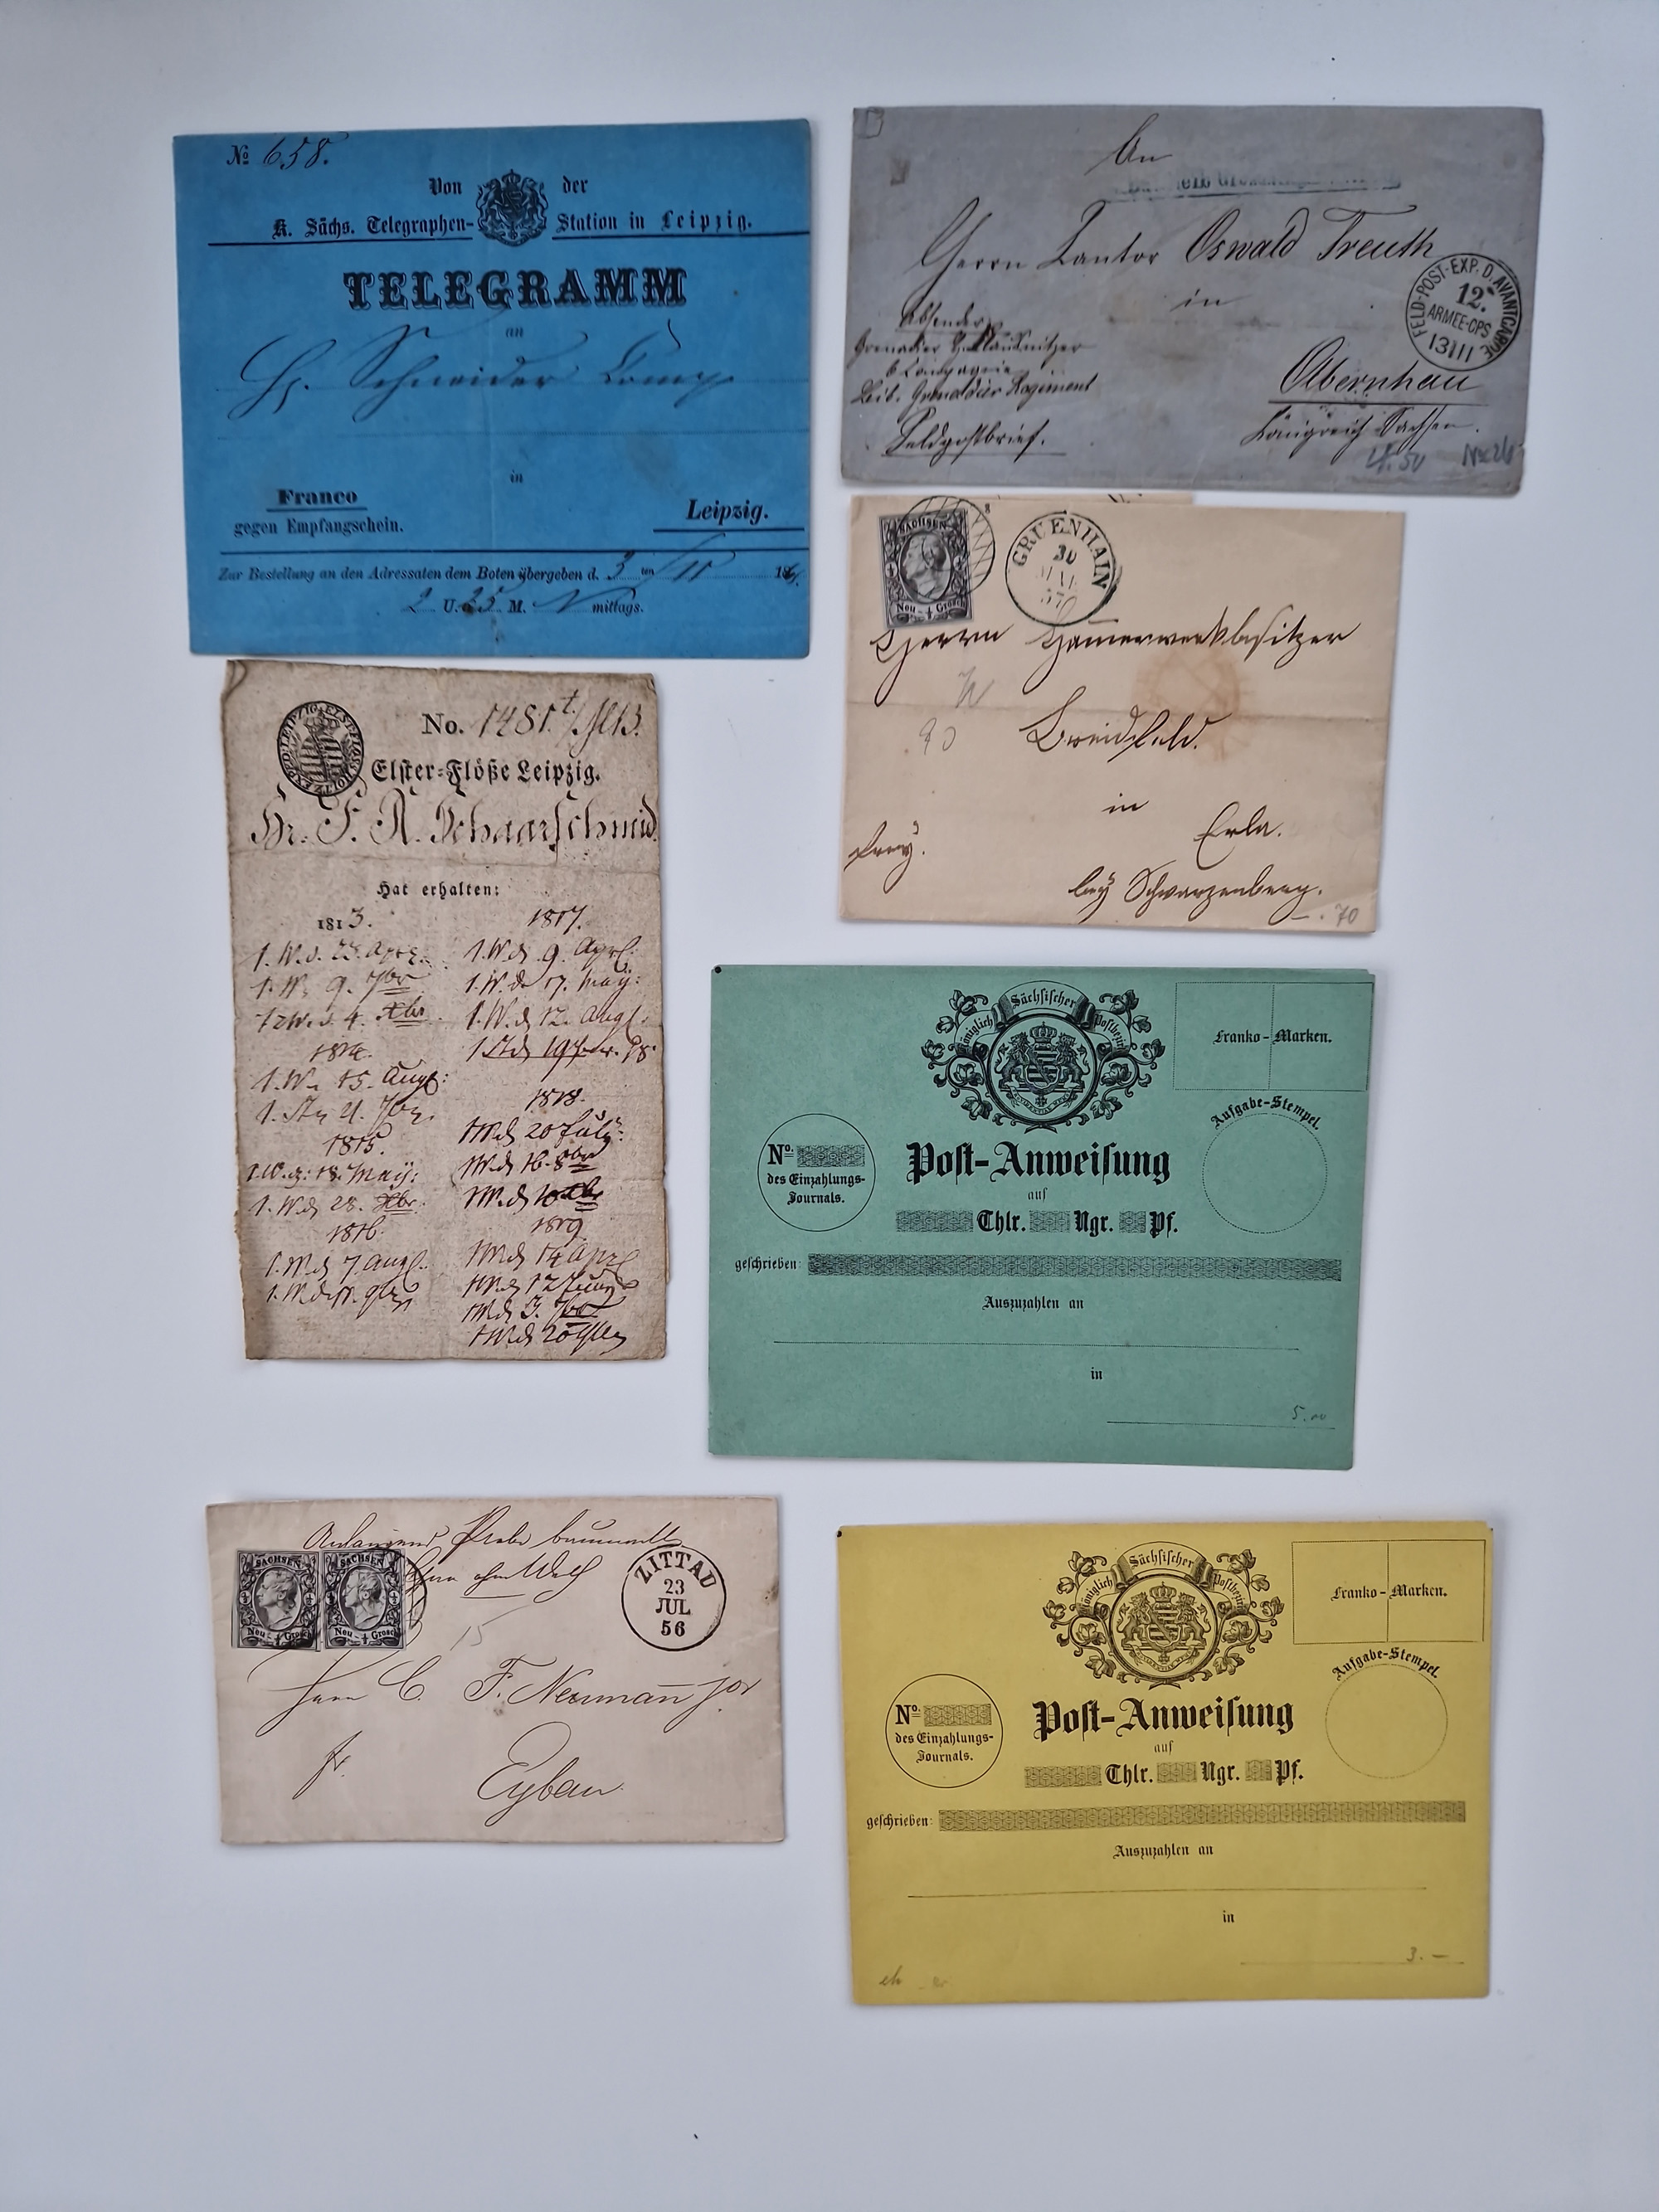 № 658.
Von der
K. Sächs. Telegraphen-Station in Leipzig.
TELEGRAMM
an
Schneider Comp
in
Franco
gegen Empfangschein.
Leipzig.
Zur Bestellung an den Adressaten dem Boten übergeben d. 3 ten 11 186
2 U. 25 M. N mittags.
An
Herrn Kantor Oswald Treuth
in
Absender
Grenadier
6 Compagnie
Leib. Grenadier Regiment
Feldpostbrief.
Olbernhau
Königreich Sachsen.
FELD-POST-EXP. D. AVANTGARDE
12.
ARMEE-CPS
13 III
SACHSEN
Neu-½ Grosch
GRUENHAIN
30
MAI
57
Herrn Hammerwerkbesitzer
Breitfeld.
in
Erla.
frey.
bey Schwarzenberg.
70
No. 1481.
ELST. FLOSSHOLTZ EXPED: LEIPZIG
Elster-Flöße Leipzig.
Hr. F. A. Schaarschmid
Hat erhalten:
1813.
1. W. d. 28. Apr.
1. W. 9. 7br
1 W. d. 4. Xbr
1814.
1. W. 15. Augl:
1. 21. 7br.
1815.
1. W. d. 18. May:
1. W. d. 28. Xbr:
1816.
1. W. d. 7 Augl.
1817.
1. W. d. 9. Aprl:
1. W. d. 17. May:
1. W. d. 12. Augl:
1818.
1 W. d. 20 July:
1 W. d. 16. 8br
1 W. d. 10 Xbr
1819
1 W. d. 14 Aprl
1 W. d. 12 Juny
1 W. d. 3. 7br
Königlich Sächsischer Postbezirk
Franko-Marken.
Aufgabe-Stempel.
No.
des Einzahlungs-
Journals.
Post-Anweisung
auf
Thlr. Ngr. Pf.
geschrieben:
Auszuzahlen an
in
5.00
SACHSEN
Neu-½ Grosch
SACHSEN
Neu-½ Grosch
ZITTAU
23
JUL
56
15
Herrn C. F. Neumann jor
fr.
Eybau
Königlich Sächsischer Postbezirk
Franko-Marken.
Aufgabe-Stempel.
No.
des Einzahlungs-
Journals.
Post-Anweisung
auf
Thlr. Ngr. Pf.
geschrieben:
Auszuzahlen an
in
3.—